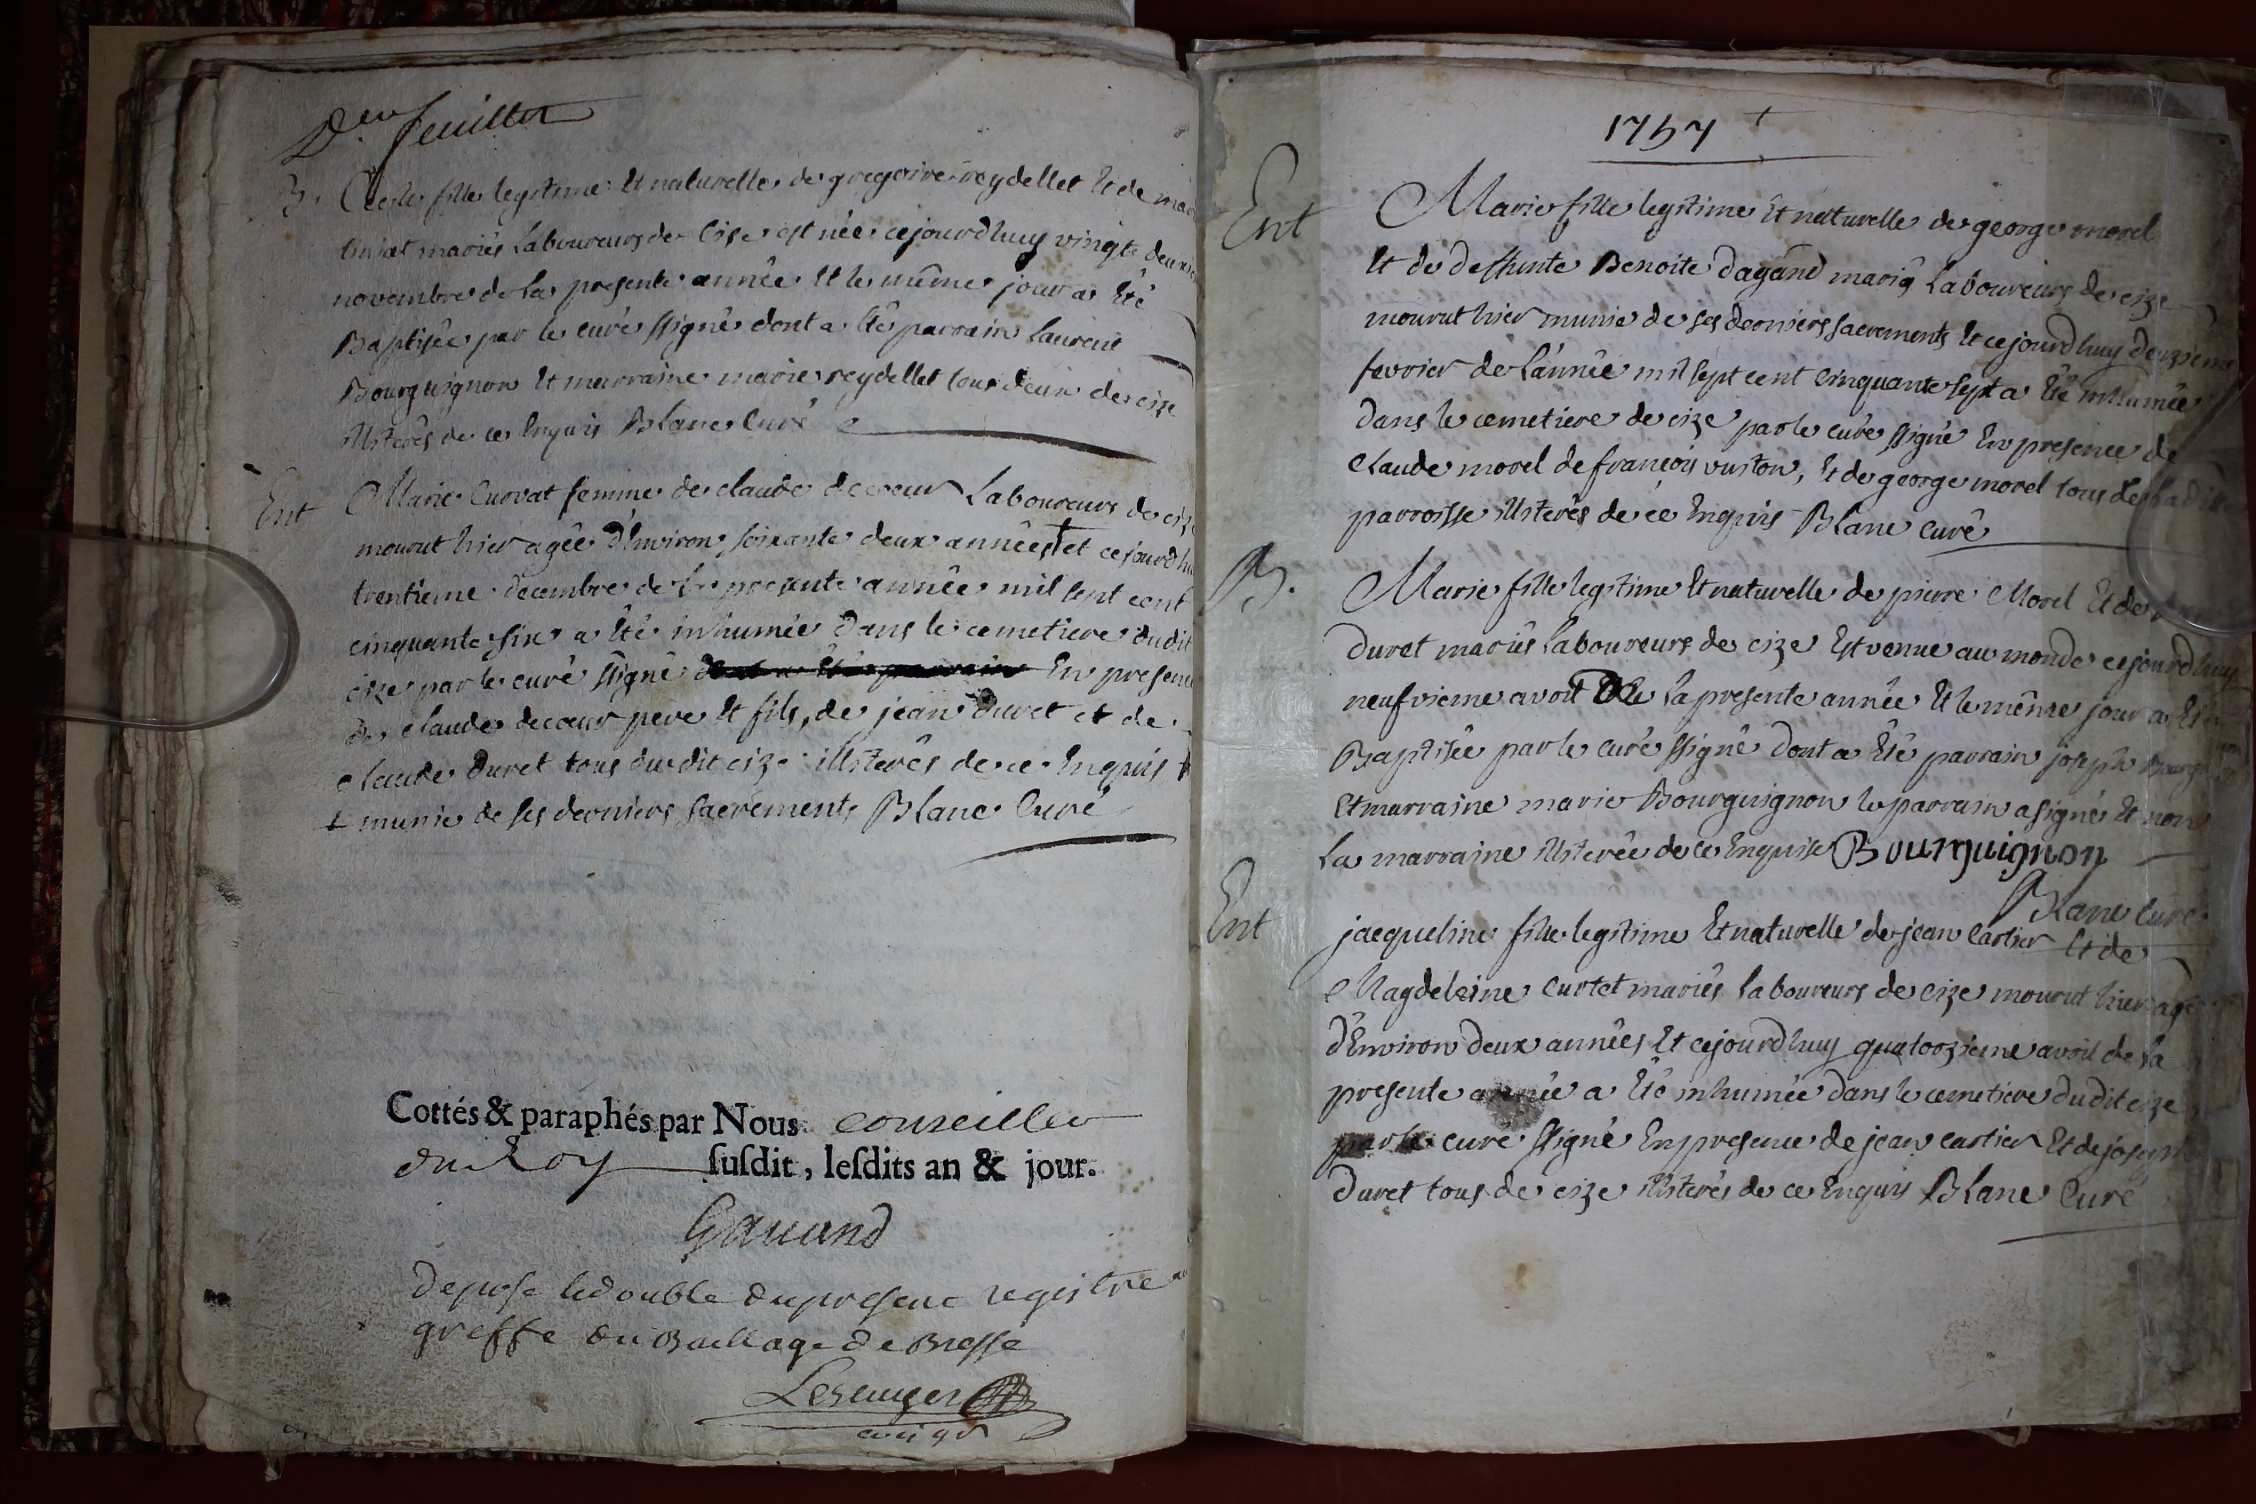 D.en feuillet
B. Cecile fille legitime Et naturelle de gregoire reydellet Et de
mariés Laboureurs de Cize est née cejourdhuy vingte deuxie
novembre de La presente année Et le même jour a Eté
Baptisée par le curé ssigné dont a Eté parrain Laurent
Bourguignon Et marraine marie reydellet tous deux de cize
illiterés de ce Enquis Blanc Curé
Ent Marie Curvat femme de claude decoeur Laboureurs de cize
mourut hier agée D'Environ soixante deux années + et cejourdhu
trentieme decembre de La presente année mil sept cent
cinquante six a Eté inhumée Dans le cemetiere dudit
cize par le curé ssigné dont a Eté parrain En presence
De claude decoeur pere Et fils, de jean Duret et de
claude Duret tous dudit cize illiterés de ce Enquis
+ munie de ses derniers sacrements Blanc Curé
Cottés & paraphés par Nous conseiller
du Roy susdit, lesdits an & jour.
Gauand
Deposé le double du present registre au
greffe du Baillage de Bresse
1757 +
Ent Marie fille legitime Et naturelle de george morel
Et de Deffunte Benoite Dagand mariés Laboureurs de cize
mourut hier munie de ses derniers sacrements Et cejourdhuy Deuxieme
fevrier de L'année mil sept cent cinquante sept a Eté inhumée
Dans le cemetiere de cize par le curé ssigné En presence de
Claude morel de françois vuiton, Et de george morel tous de Ladite
parroisse illiterés de ce Enquis Blanc Curé
B. Marie fille legitime Et naturelle de pierre Morel Et de
Duret mariés Laboureurs de cize Est venue au monde cejourdhuy
neufvieme avril De La presente année Et le même jour a Eté
Baptisée par le curé ssigné Dont a Eté parrain joseph Bourguignon
Et marraine marie Bourguignon le parrain a signé Et non
La marraine illiterée de ce Enquise Bourguignon
Blanc Curé
Ent jacqueline fille legitime Et naturelle de jean Carlier Et de
Magdeleine Curtet mariés Laboureurs de cize mourut hier agée
D'Environ Deux années Et cejourdhuy quatorzieme avril de La
presente année a Eté inhumée Dans le cemetiere Dudit cize
par le curé ssigné En presence de jean Carlier Et de joseph
Duret tous de cize illiterés de ce Enquis Blanc Curé